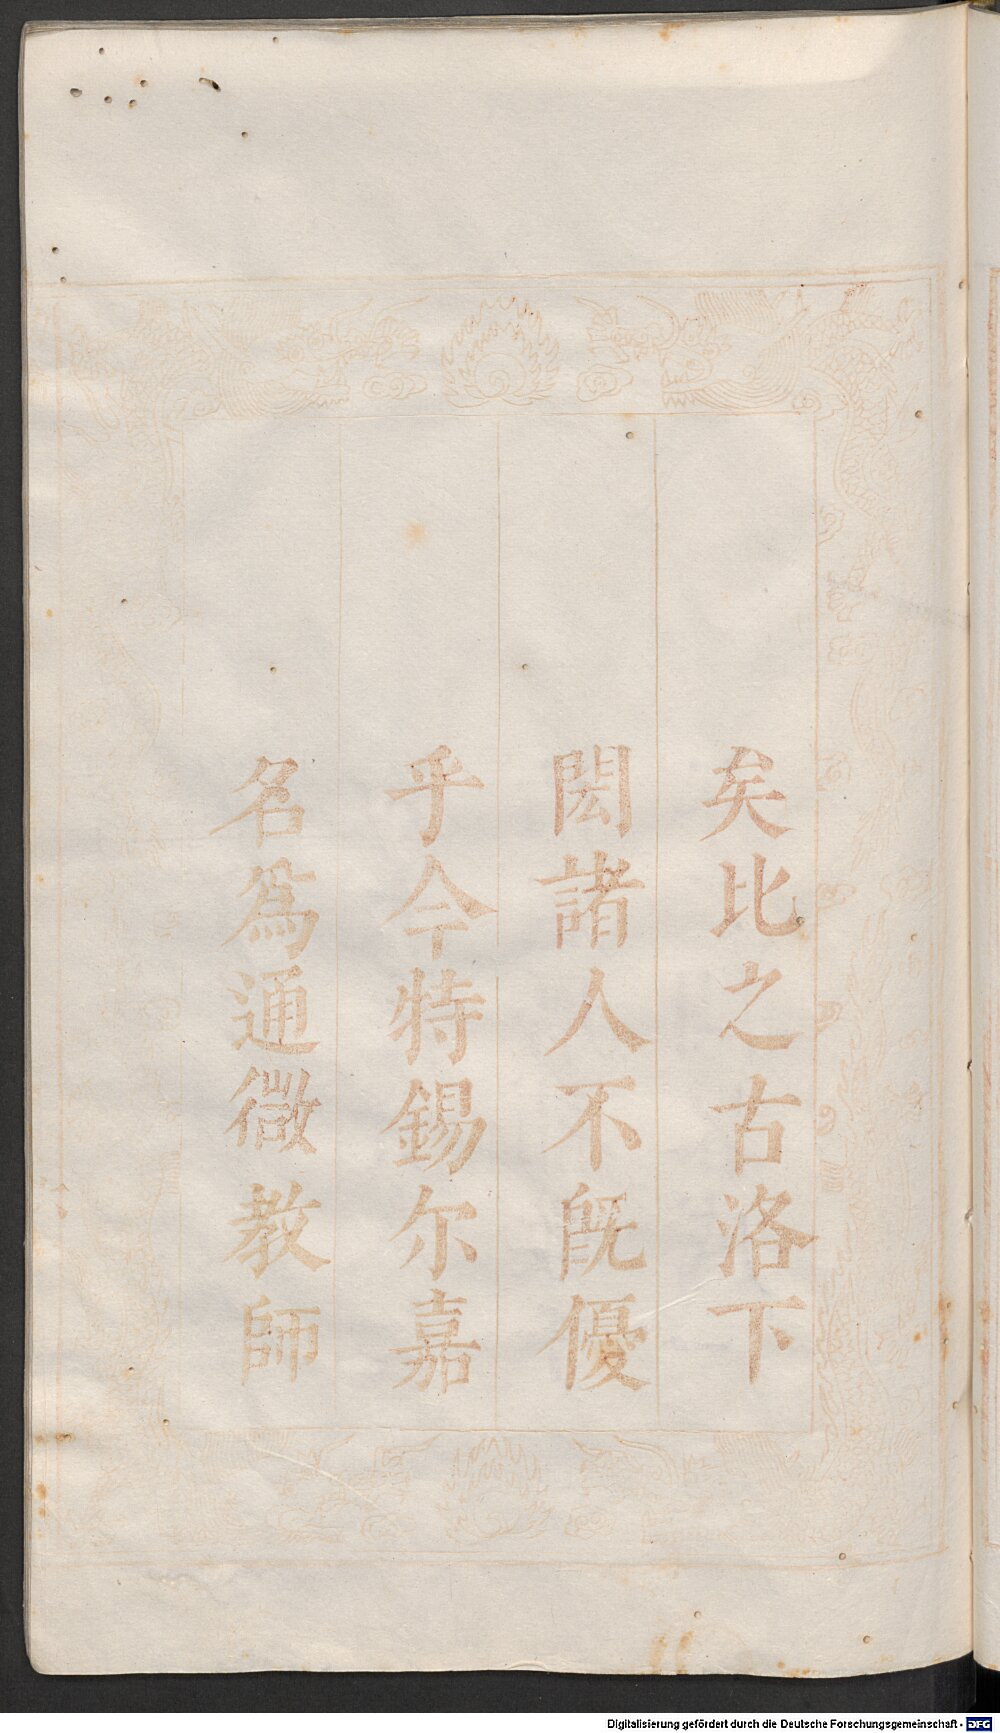 矣比之古洛下
閎諸人不旣優
乎今特錫尔嘉
名爲通微教師
Digitalisierung gefördert durch die Deutsche Forschungsgemeinschaft - DFG